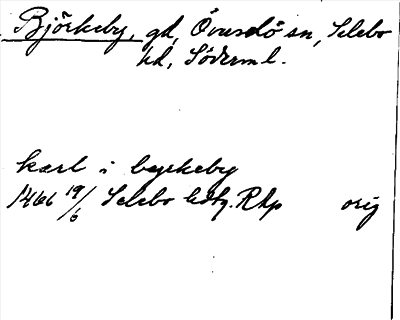 Björkeby, gd, Överselö sn, Selebo
hd, Söderml.
karl i byrkeby
1466 19/6 Selebo hdtg. RAp orig